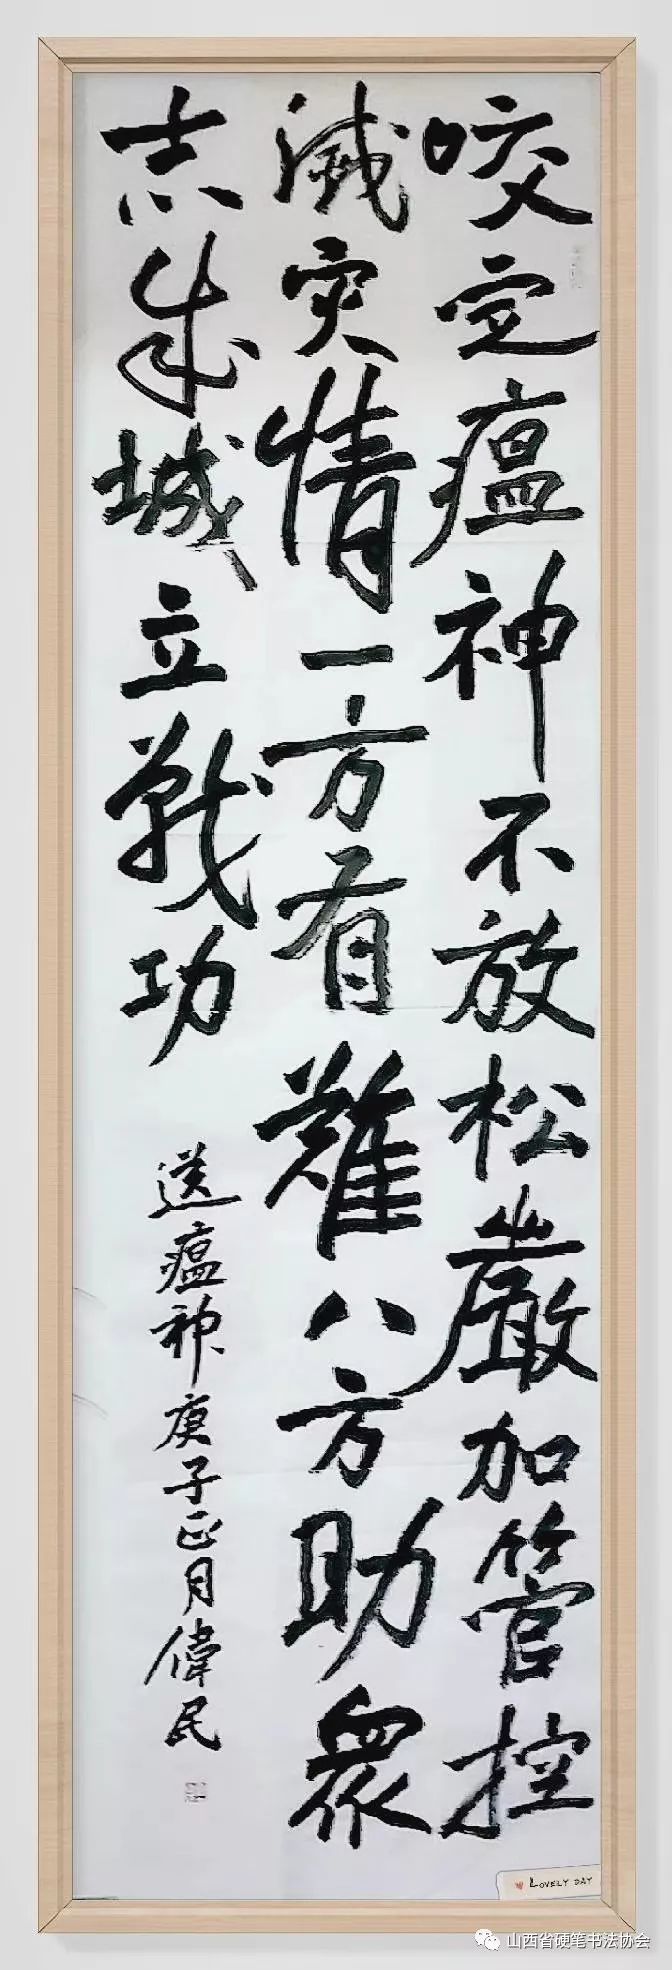 咬定瘟神不放松嚴加管控
滅灾情一方有難八方助眾
志成城立戰功
送瘟神庚子正月偉民
LOVELY DAY
山西省硬笔书法协会